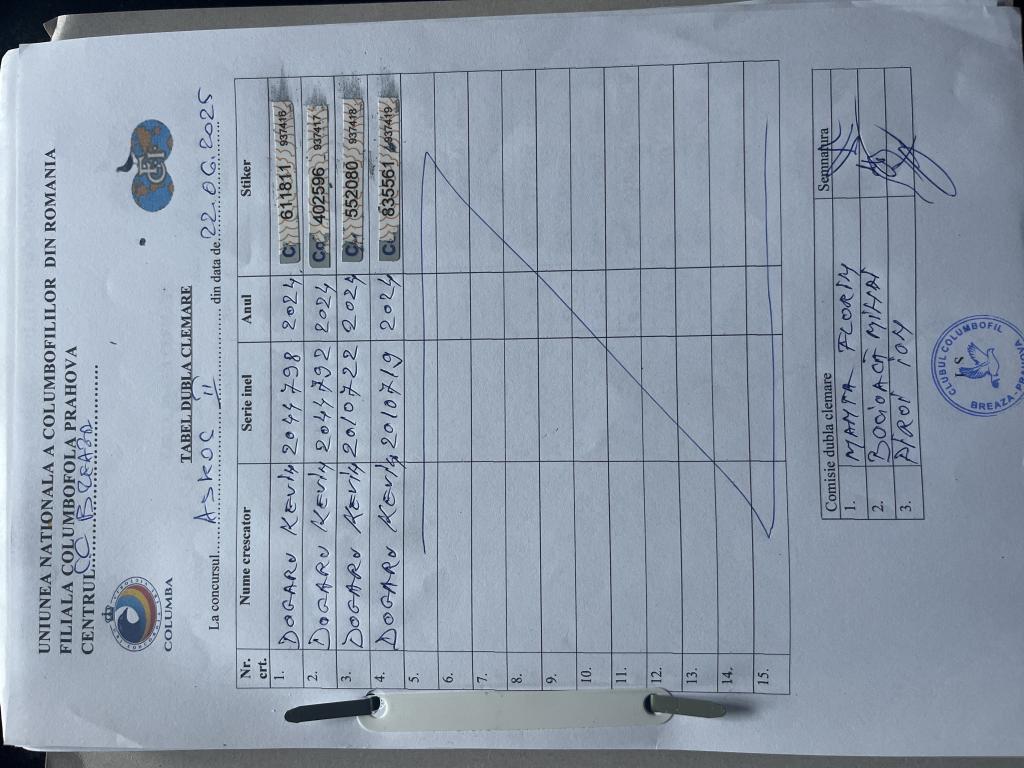 UNIUNEA NATIONALA A COLUMBOFILILOR DIN ROMANIA
FILIALA COLUMBOFOLA PRAHOVA
CENTRUL CC BREAZA
COLUMBA
FCI
TABEL DUBLA CLEMARE
La concursul ASKOC II din data de 22.06.2025
Nr. crt. Nume crescator Serie inel Anul Stiker
1. DOGARU KEVIN 2044798 2024 611811 937416
2. DOGARU KEVIN 2044792 2024 402596 937417
3. DOGARU KEVIN 2010722 2024 552080 937418
4. DOGARU KEVIN 2010719 2024 835561 937419
5.
6.
7.
8.
9.
10.
11.
12.
13.
14.
15.
Comisie dubla clemare Semnatura
1. MANTA FLORIN
2. BOCIOACĂ MIHAI
3. PIRON ION
CLUBUL COLUMBOFIL
BREAZA - PRAHOVA